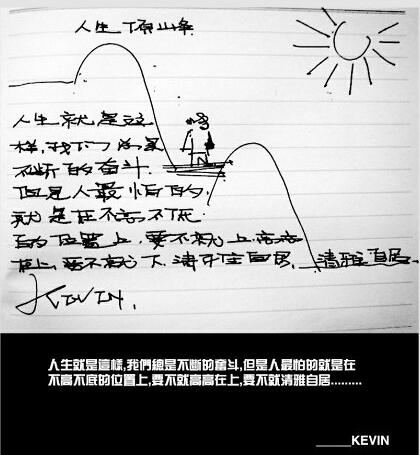 人生顶峰
人生就是这
样,我们总是
不断的奋斗.
但是人最怕的,
就是在不高不低
的位置上,要不就上高高
在上,要不就下.清雅自居.
KEVIN.
人生就是這樣,我們總是不斷的奮斗,但是人最怕的就是在
不高不底的位置上,要不就高高在上,要不就清雅自居.........
_____KEVIN